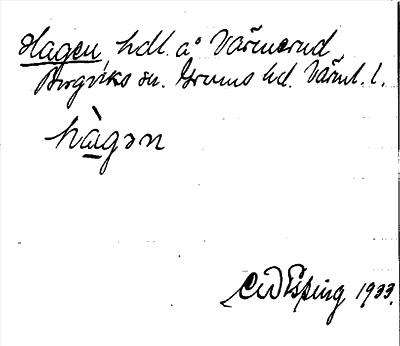 Hagen, hdl. å Värmerud,
Borgviks sn. Grums hd. Värml. l.
hàgən
CW Esping 1933.